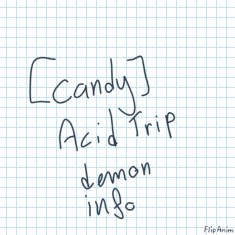 [Candy]
Acid Trip
demon
info
FlipAnim